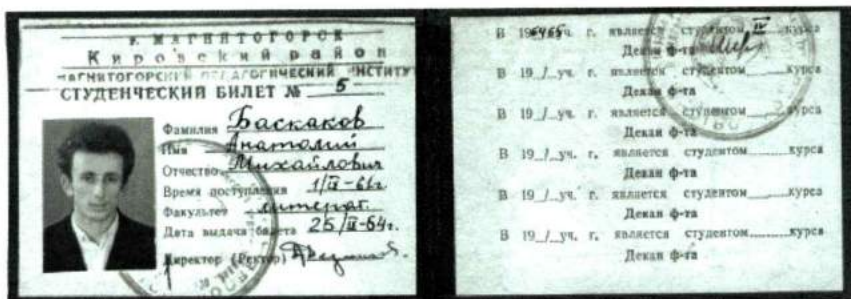 г. МАГНИТОГОРСК
Кировский район
МАГНИТОГОРСКИЙ ПЕДАГОГИЧЕСКИЙ ИНСТИТУ
СТУДЕНЧЕСКИЙ БИЛЕТ № 5
Фамилия Баскаков
Имя Анатолий
Отчество Михайлович
Время поступления 1/IX-61г.
Факультет литерат.
Дата выдачи билета 25/II-64г.
Директор (Ректор)
В 1964/65 уч. г. является студентом IV курса
Декан ф-та
В 19_/_уч. г. является студентом курса
Декан ф-та
В 19_/_уч. г. является студентом курса
Декан ф-та
В 19_/_уч. г. является студентом курса
Декан ф-та
В 19_/_уч. г. является студентом курса
Декан ф-та
В 19_/_уч. г. является студентом курса
Декан ф-та